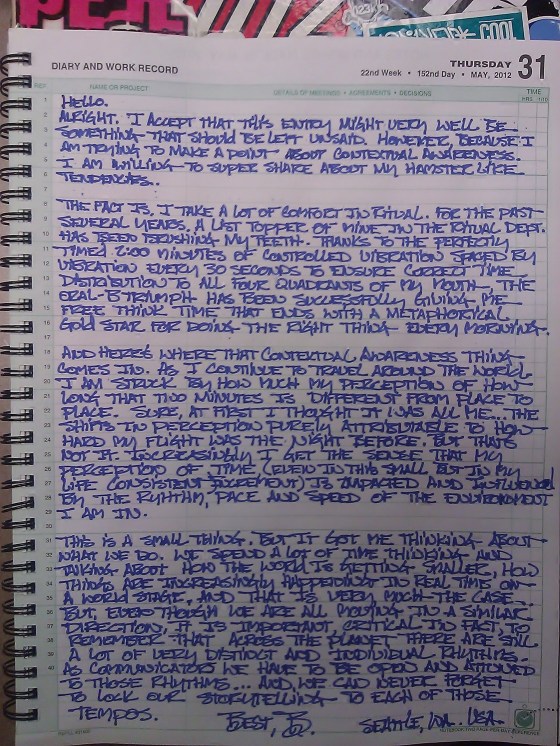 PEZ
COOL
DIARY AND WORK RECORD
THURSDAY 31
22nd Week • 152nd Day • MAY, 2012
REF
NAME OR PROJECT
DETAILS OF MEETINGS • AGREEMENTS • DECISIONS
TIME
HRS. 1/10
1 HELLO.
2 ALRIGHT. I ACCEPT THAT THIS ENTRY MIGHT VERY WELL BE
3 SOMETHING THAT SHOULD BE LEFT UNSAID. HOWEVER, BECAUSE I
4 AM TRYING TO MAKE A POINT ABOUT CONTEXTUAL AWARENESS.
5 I AM WILLING TO SUPER SHARE ABOUT MY HAMSTER LIKE
6 TENDENCIES..
7
8 THE FACT IS, I TAKE A LOT OF COMFORT IN RITUAL. FOR THE PAST
9 SEVERAL YEARS, A LIST TOPPER OF MINE IN THE RITUAL DEPT.
10 HAS BEEN BRUSHING MY TEETH. THANKS TO THE PERFECTLY
11 TIMED 2:00 MINUTES OF CONTROLLED VIBRATION SPACED BY
12 VIBRATION EVERY 30 SECONDS TO ENSURE CORRECT TIME
13 DISTRIBUTION TO ALL FOUR QUADRANTS OF MY MOUTH, THE
14 ORAL-B TRIUMPH HAS BEEN SUCCESSFULLY GIVING ME
15 FREE THINK TIME THAT ENDS WITH A METAPHORICAL
16 GOLD STAR FOR DOING THE RIGHT THING EVERY MORNING.
17
18 AND HERE'S WHERE THAT CONTEXTUAL AWARENESS THING
19 COMES IN. AS I CONTINUE TO TRAVEL AROUND THE WORLD
20 I AM STRUCK BY HOW MUCH MY PERCEPTION OF HOW
21 LONG THAT TWO MINUTES IS DIFFERENT FROM PLACE TO
22 PLACE. SURE, AT FIRST I THOUGHT IT WAS ALL ME...THE
23 SHIFTS IN PERCEPTION PURELY ATTRIBUTABLE TO HOW
24 HARD MY FLIGHT WAS THE NIGHT BEFORE. BUT THAT'S
25 NOT IT. INCREASINGLY I GET THE SENSE THAT MY
26 PERCEPTION OF TIME (EVEN IN THIS SMALL BUT IN MY
27 LIFE CONSISTENT INCREMENT) IS IMPACTED AND INFLUENCED
28 BY THE RHYTHM, PACE AND SPEED OF THE ENVIRONMENT
29 I AM IN.
30
31 THIS IS A SMALL THING. BUT IT GOT ME THINKING ABOUT
32 WHAT WE DO. WE SPEND A LOT OF TIME THINKING AND
33 TALKING ABOUT HOW THE WORLD IS GETTING SMALLER, HOW
34 THINGS ARE INCREASINGLY HAPPENING IN REAL TIME ON
35 A WORLD STAGE. AND THAT IS VERY MUCH THE CASE...
36 BUT, EVEN THOUGH WE ARE ALL MOVING IN A SIMILAR
37 DIRECTION, IT IS IMPORTANT, CRITICAL IN FACT, TO
38 REMEMBER THAT ACROSS THE PLANET THERE ARE STILL
39 A LOT OF VERY DISTINCT AND INDIVIDUAL RHYTHMS.
40 AS COMMUNICATORS WE HAVE TO BE OPEN AND ATTUNED
TO THOSE RHYTHMS... AND, WE CAN NEVER FORGET
TO LOCK OUR STORYTELLING TO EACH OF THOSE
TEMPOS. BEST, B. SEATTLE, WA. USA.